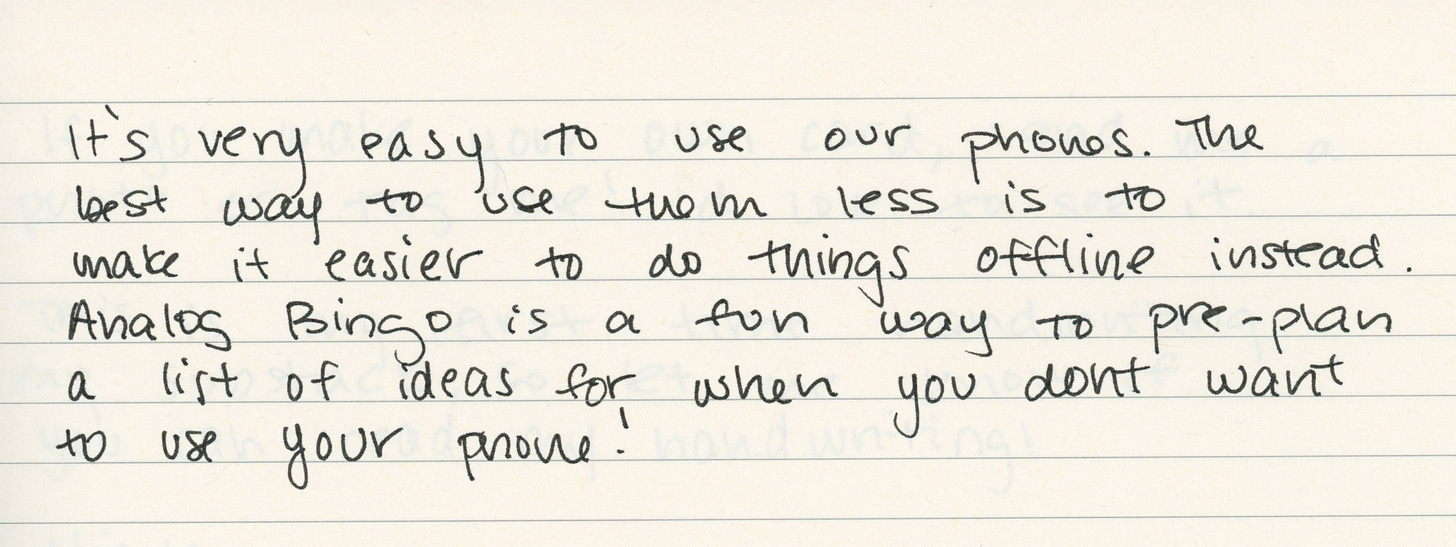 It's very easy to use our phones. The
best way to use them less is to
make it easier to do things offline instead.
Analog Bingo is a fun way to pre-plan
a list of ideas for when you dont want
to use your phone!